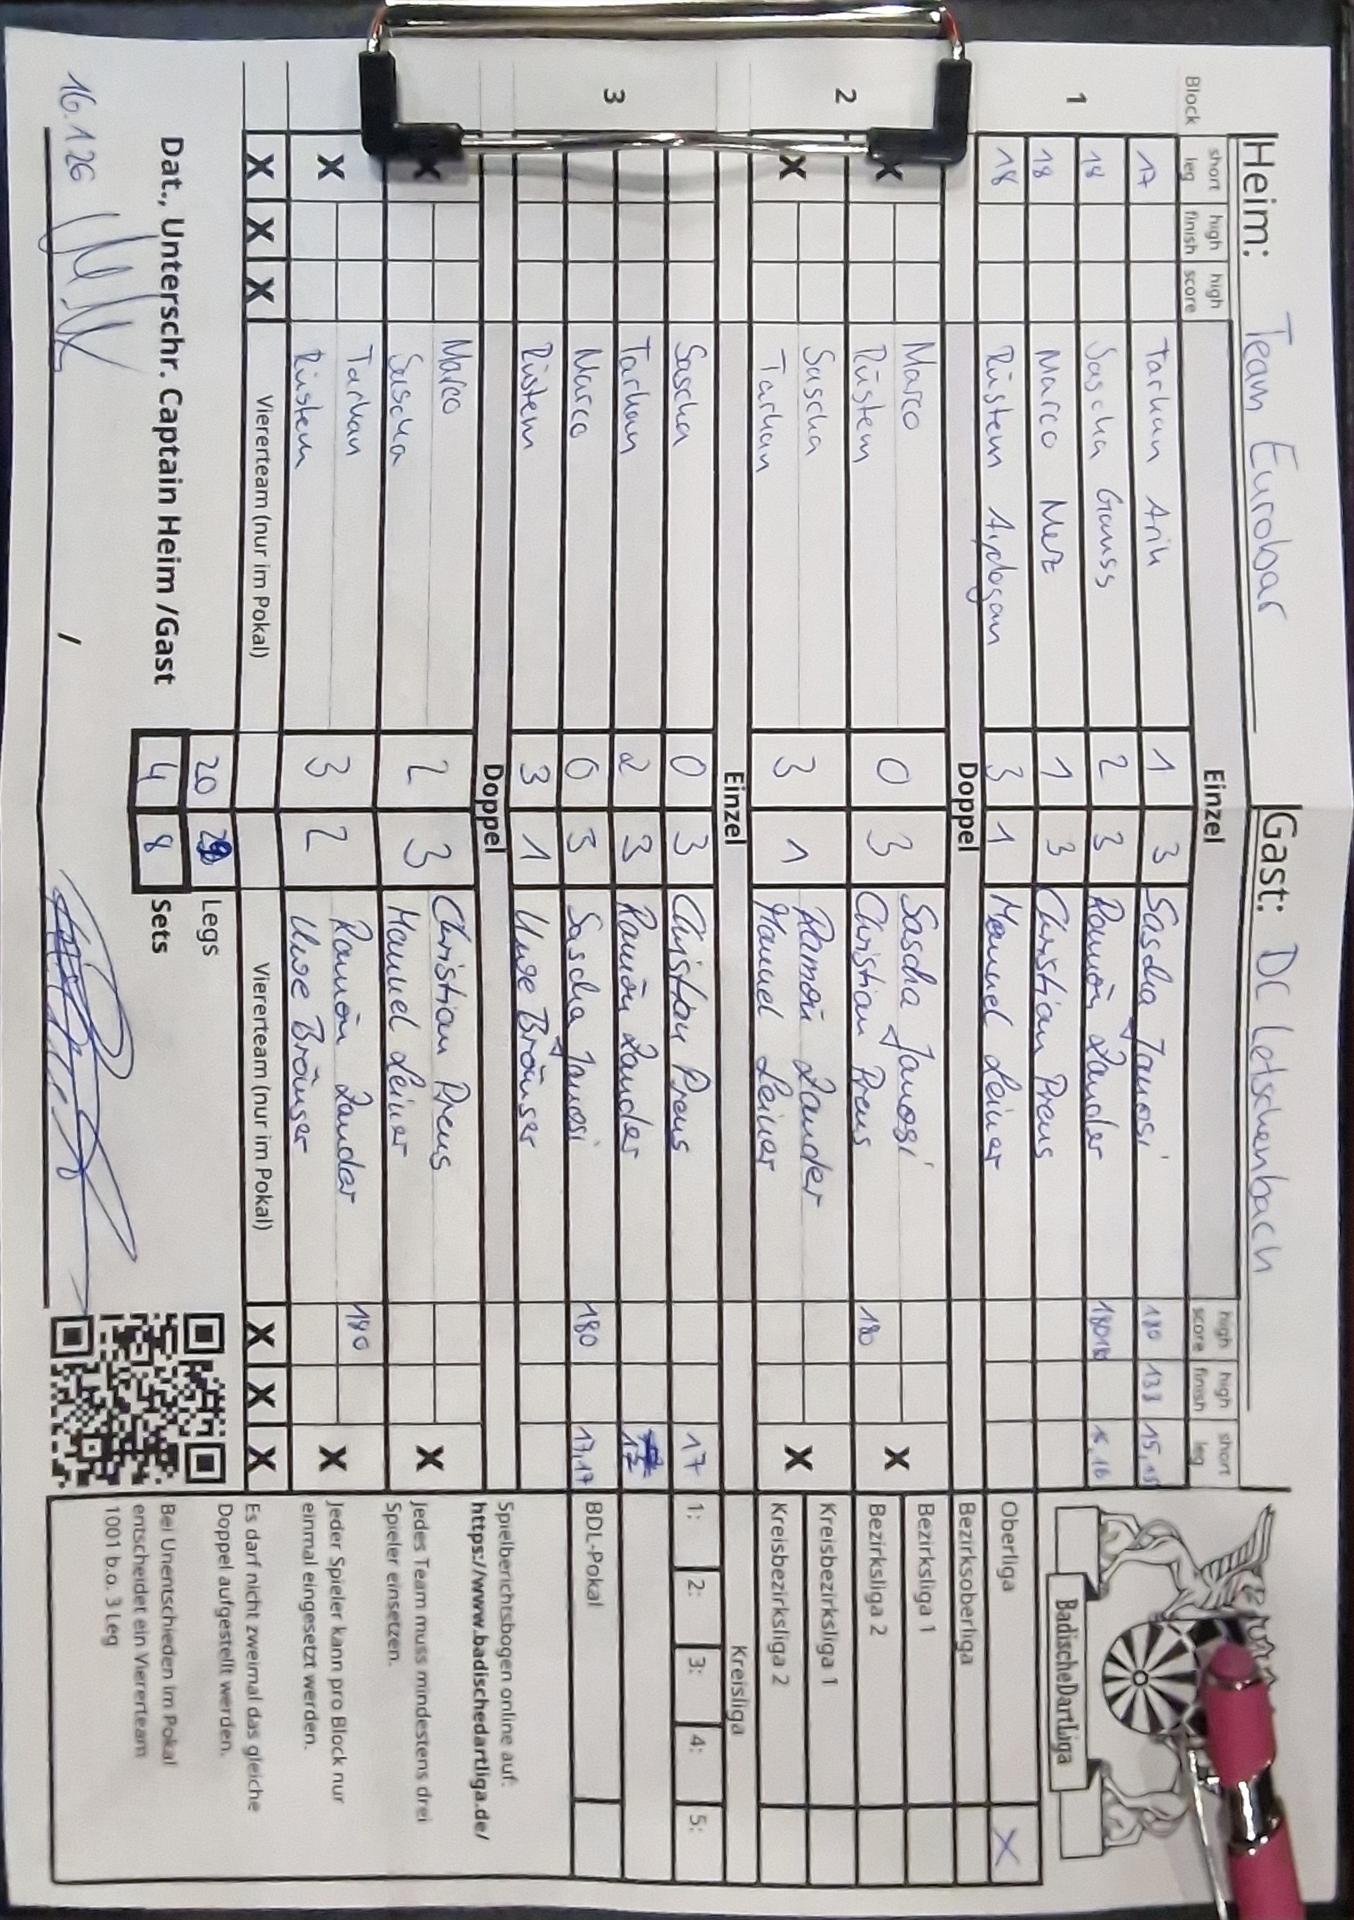 Heim: Team Eurobar Gast: DC Letschenbach
Block short leg high finish high score Einzel high score high finish short leg
1 17 Tarkan Arik 1 3 Sascha Janosi 180 133 15,
18 Sascha Gauss 2 3 Ramón Zander 180 180 15,16
18 Marco Merz 1 3 Christian Preus
18 Rüstem Aydogan 3 1 Manuel Leiner
Doppel
2 X Marco 0 3 Sascha Janosi X
Rüstem Christian Preus 180
X Sascha 3 1 Ramón Zander X
Tarkan Manuel Leiner
Einzel
3 Sascha 0 3 Christian Preus 17
Tarkan 2 3 Ramón Zander 17
Marco 0 3 Sascha Janosi 180 17,17
Rüstem 3 1 Uwe Bräuser
Doppel
X Marco 2 3 Christian Preus X
Sascha Manuel Leiner
X Tarkan 3 2 Ramón Zander 180 X
Rüstem Uwe Bräuser
X X X Viererteam (nur im Pokal) Viererteam (nur im Pokal) X X X
20 Legs
Dat., Unterschr. Captain Heim /Gast 4 8 Sets
16.1.26 /
BadischeDartLiga
Oberliga X
Bezirksoberliga
Bezirksliga 1
Bezirksliga 2
Kreisbezirksliga 1
Kreisbezirksliga 2
Kreisliga
1: 2: 3: 4: 5:
BDL-Pokal
Spielberichtsbogen online auf:
https://www.badischedartliga.de/
Jedes Team muss mindestens drei
Spieler einsetzen.
Jeder Spieler kann pro Block nur
einmal eingesetzt werden.
Es darf nicht zweimal das gleiche
Doppel aufgestellt werden.
Bei Unentschieden im Pokal
entscheidet ein Viererteam
1001 b.o. 3 Leg